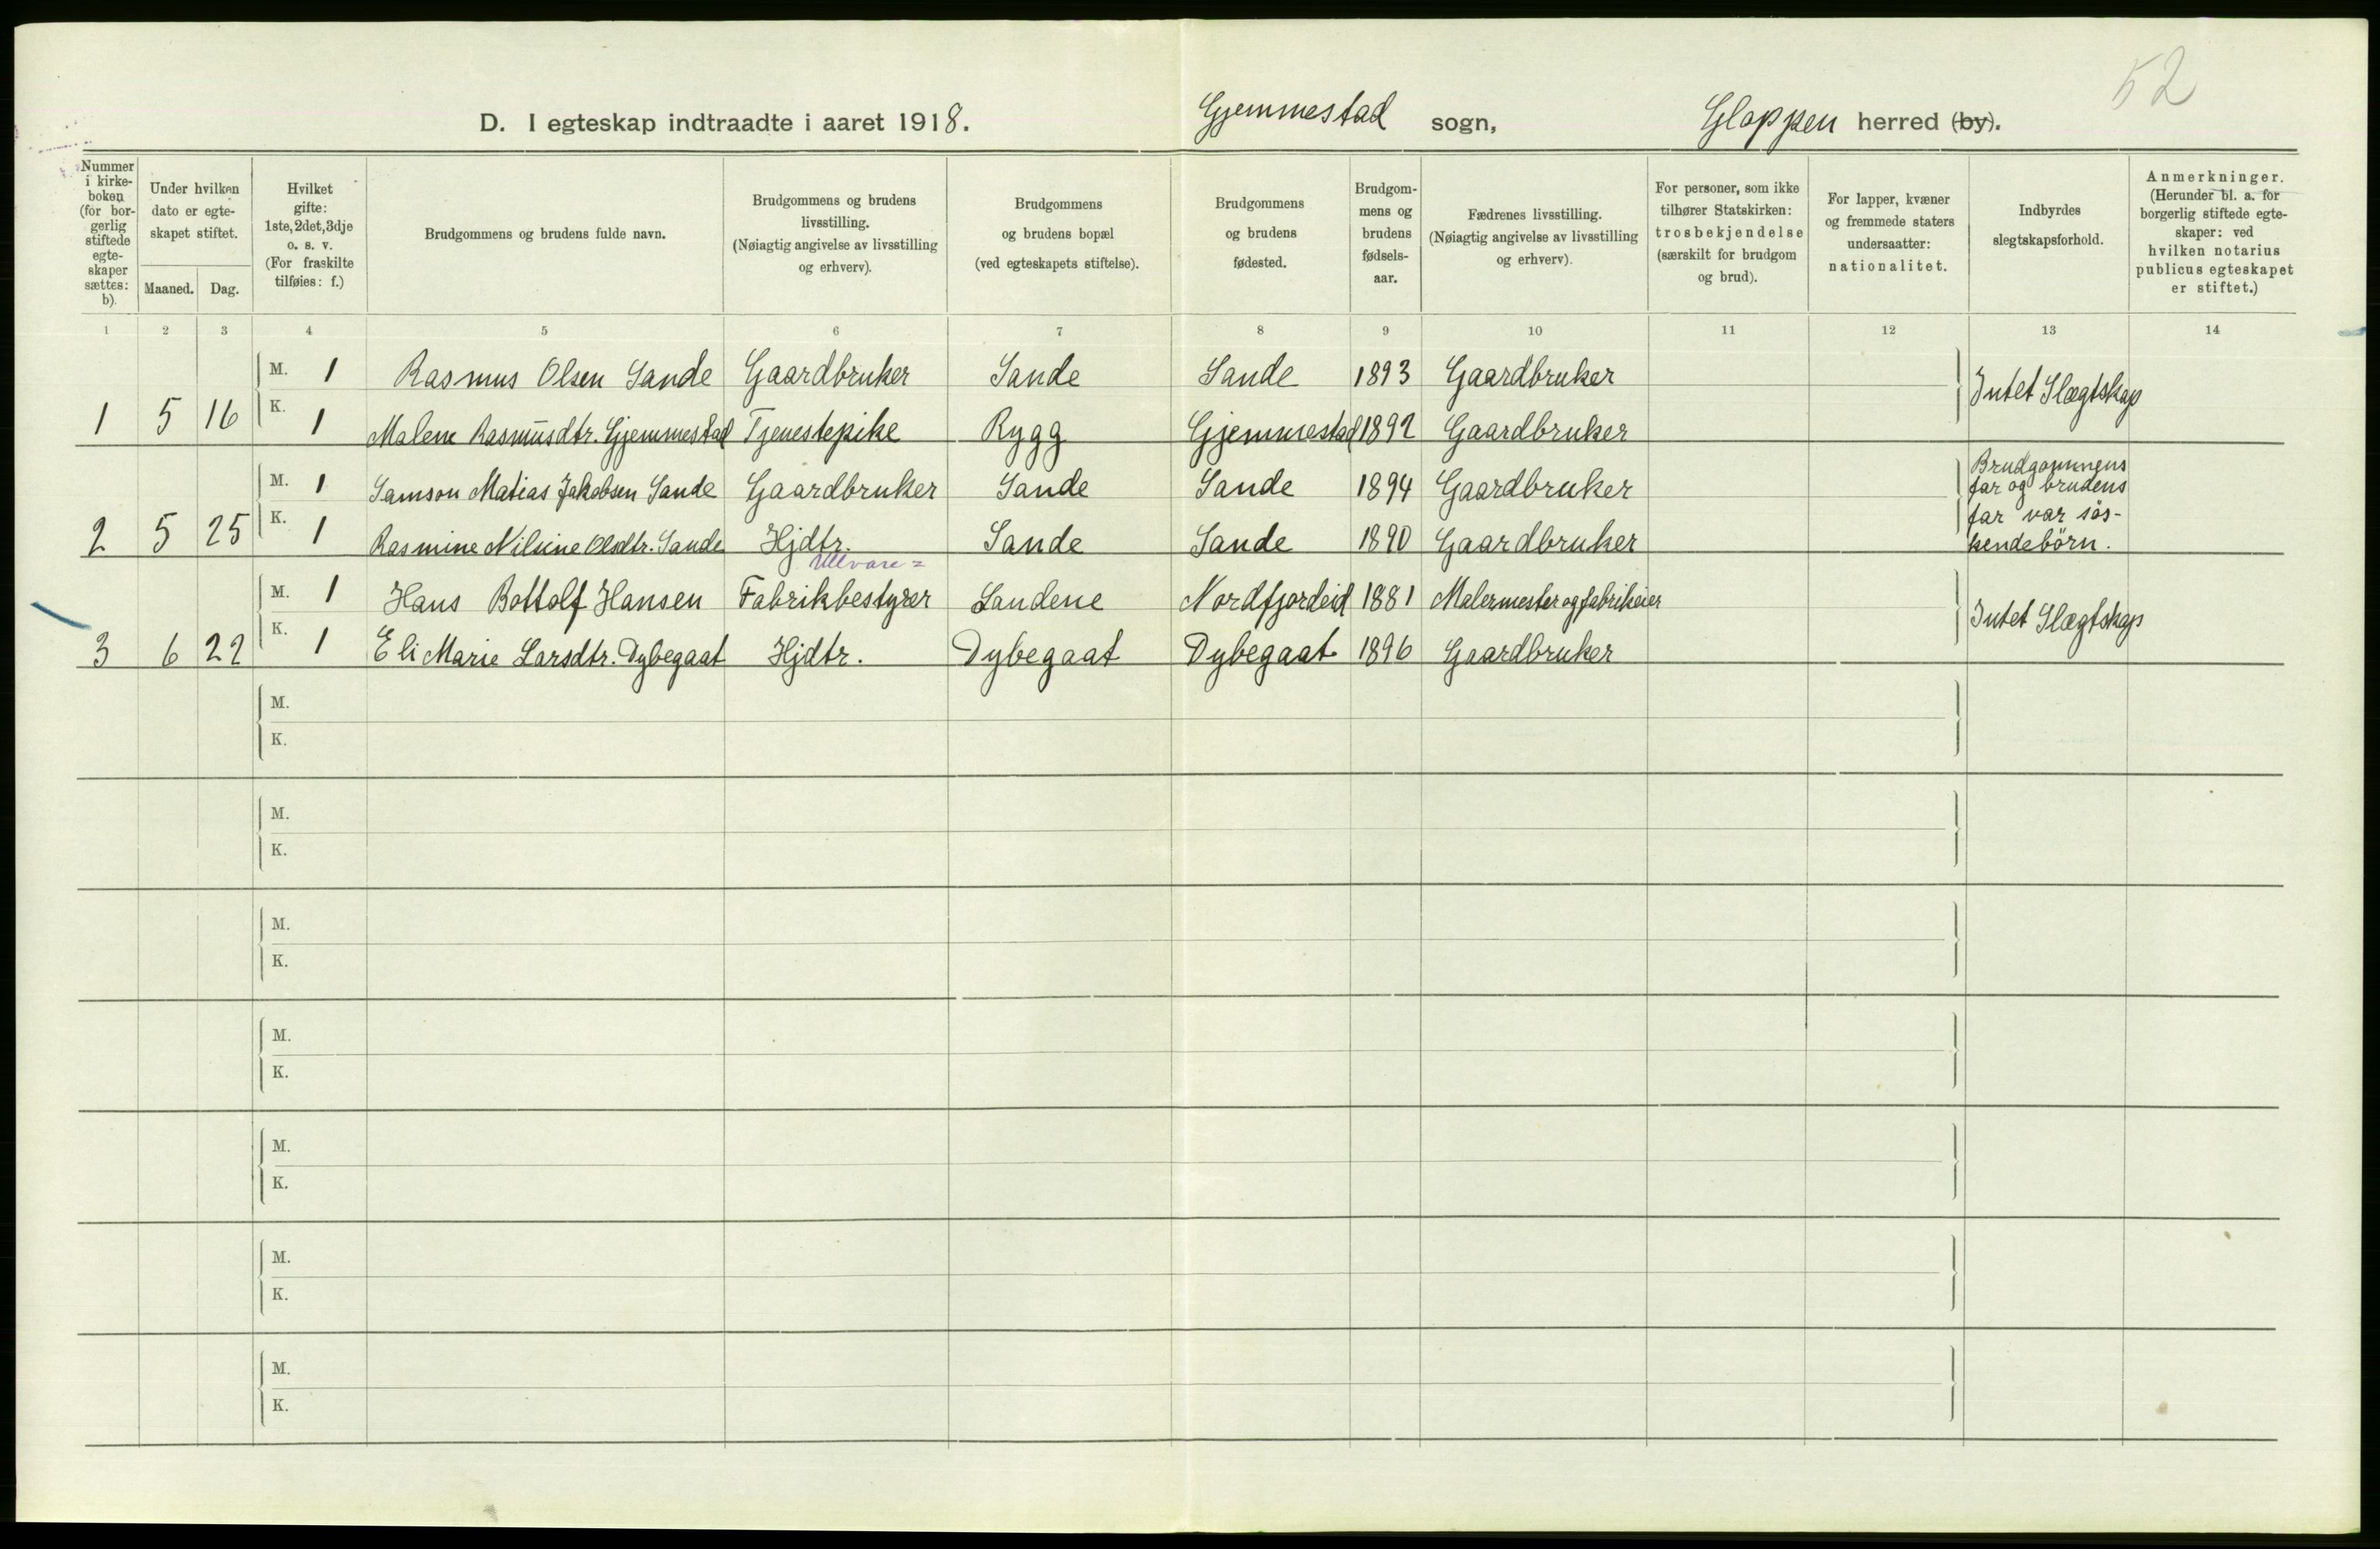 52
D. I egteskap indtraadte i aaret 1918. Gjemmestad sogn, Gloppen herred (by).
Nummer i kirkeboken (for borgerlig stiftede egteskaper sættes: b).
Under hvilken dato er egteskapet stiftet.
Maaned. Dag.
Hvilket gifte: 1ste, 2det, 3dje o. s. v. (For fraskilte tilføies: f.)
Brudgommens og brudens fulde navn.
Brudgommens og brudens livsstilling. (Nøiagtig angivelse av livsstilling og erhverv).
Brudgommens og brudens bopæl (ved egteskapets stiftelse).
Brudgommens og brudens fødested.
Brudgommens og brudens fødselsaar.
Fædrenes livsstilling. (Nøiagtig angivelse av livsstilling og erhverv).
For personer, som ikke tilhører Statskirken: trosbekjendelse (særskilt for brudgom og brud).
For lapper, kvæner og fremmede staters undersaatter: nationalitet.
Indbyrdes slegtskapsforhold.
Anmerkninger. (Herunder bl. a. for borgerlig stiftede egteskaper: ved hvilken notarius publicus egteskapet er stiftet.)
1 2 3 4 5 6 7 8 9 10 11 12 13 14
M. 1 Rasmus Olsen Sande Gaardbruker Sande Sande 1893 Gaardbruker Intet Slægtskap
1 5 16 K. 1 Malene Rasmusdtr. Gjemmestad Tjenestepike Rygg Gjemmestad 1892 Gaardbruker
M. 1 Samson Matias Jakobsen Sande Gaardbruker Sande Sande 1894 Gaardbruker Brudgommens far og brudens
2 5 25 K. 1 Rasmine Nilsine Olsdtr. Sande Hjdtr. Sande Sande 1890 Gaardbruker far var søskendebörn.
Ullvare=
M. 1 Hans Bottolf Hansen Fabrikbestyrer Sandene Nordfjordeid 1881 Malermester og fabrikeier Intet Slægtskap
3 6 22 K. 1 Eli Marie Larsdtr. Dybegaat Hjdtr. Dybegaat Dybegaat 1896 Gaardbruker
M.
K.
M.
K.
M.
K.
M.
K.
M.
K.
M.
K.
M.
K.